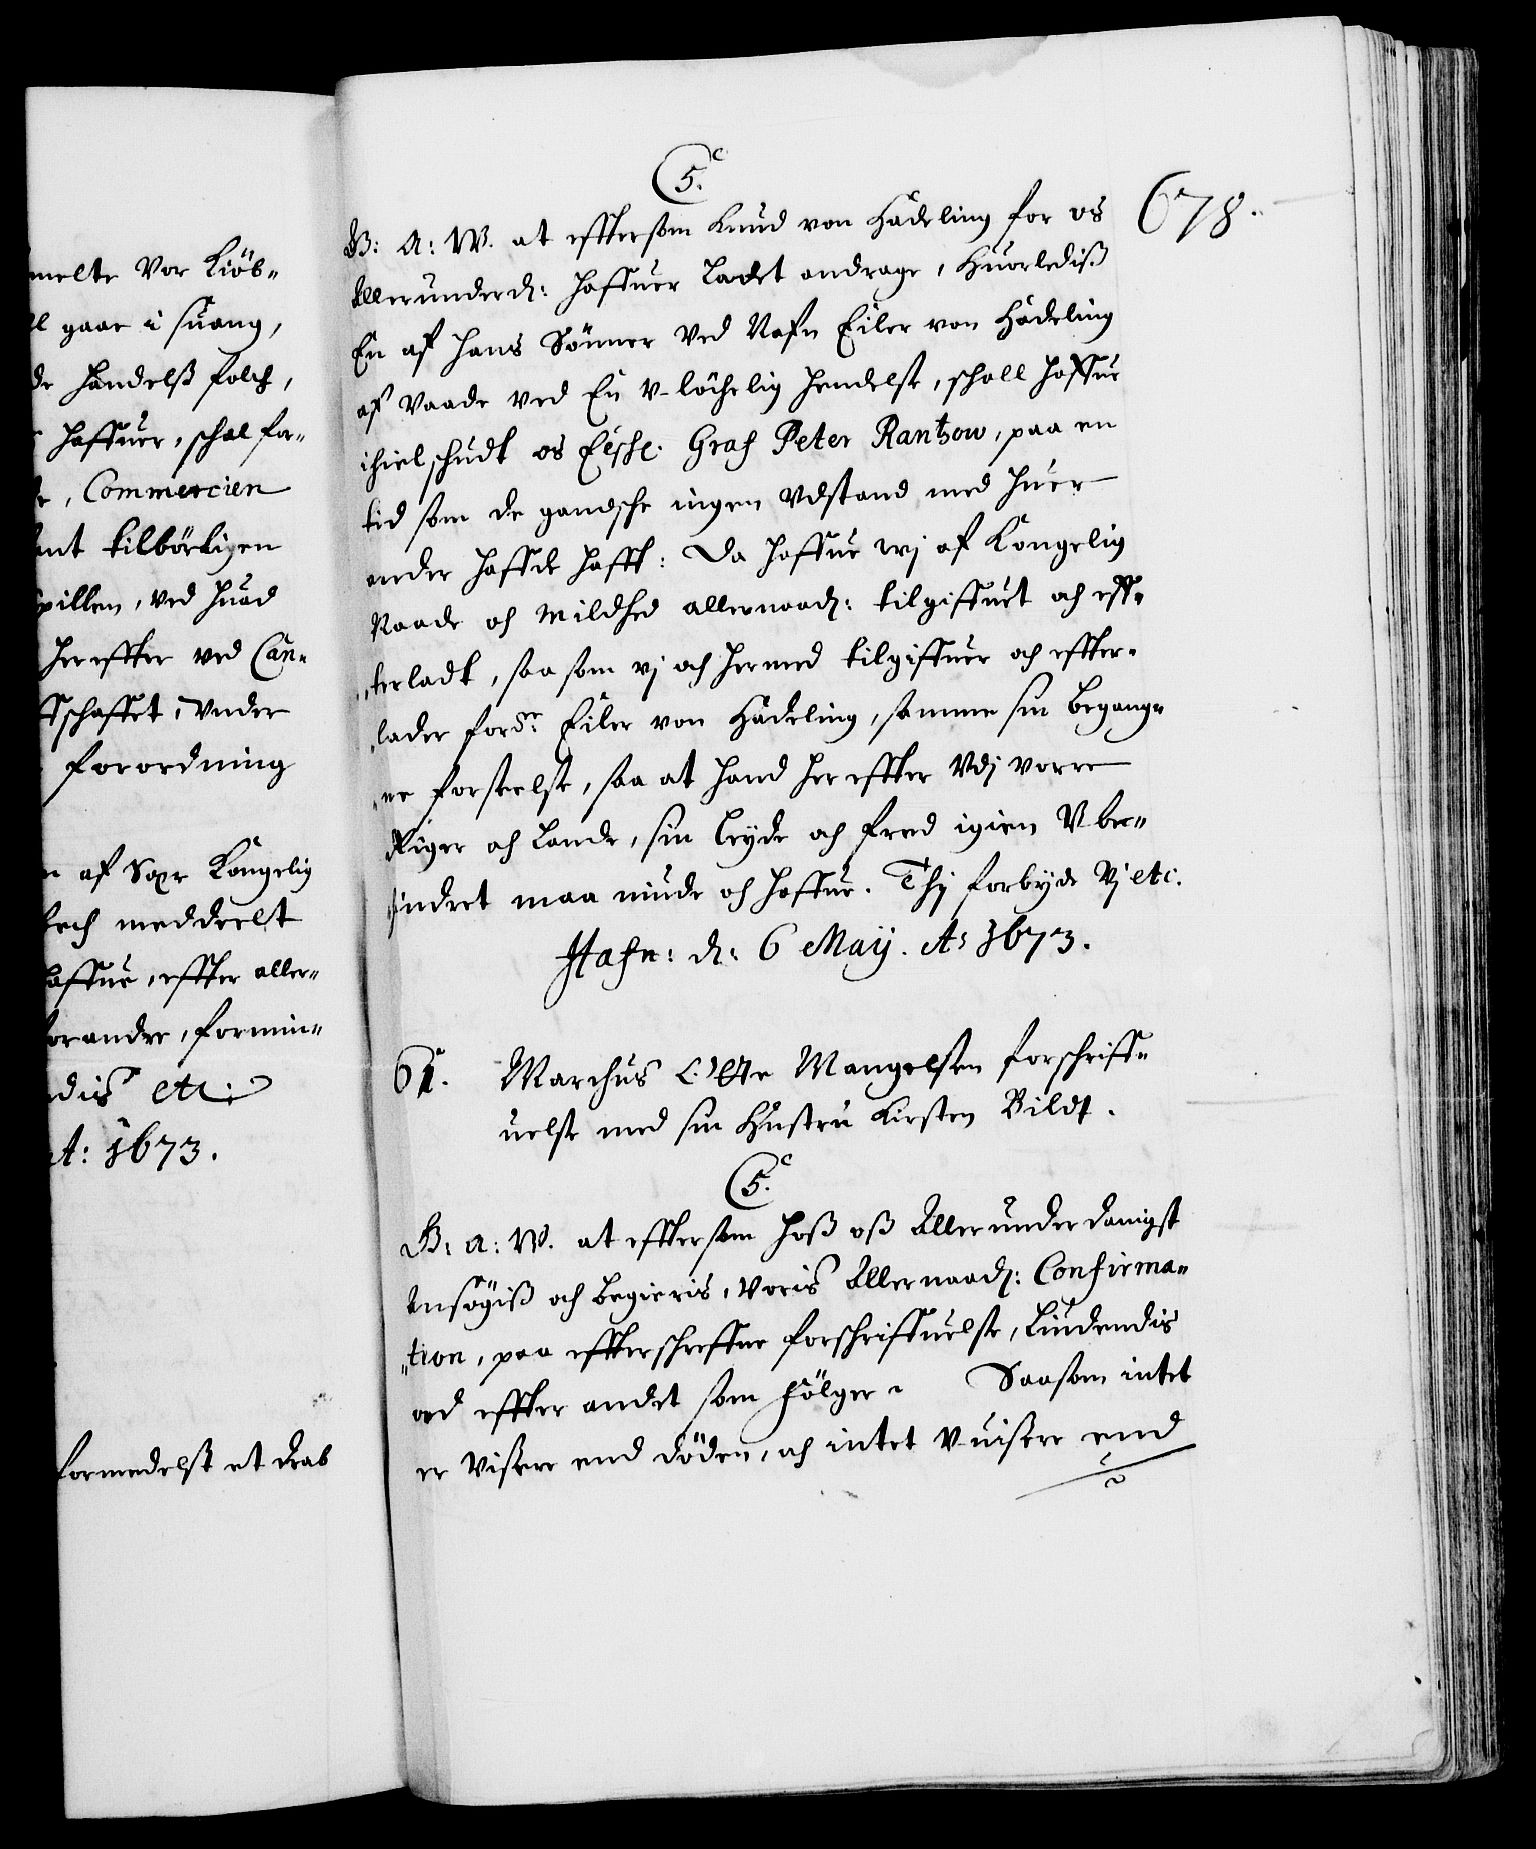 melte vor Kiöb-
gaae i suang,
de Handelss folch,
haffuer, schal for-
Commercien
tilbörligen
spillen, ved huad
her effter ved Can-
schaffet, under
forordning
af Saxe Kongelig
meddeelt
haffue, effter aller-
forandre, formin-
dis etc:
A: 1673.
formedelst et drab
C5.
678.
G: A: W. at effttersom Knud von Hadeling for os
Allerunderd: haffuer ladet andrage, huorlediss
En af hans Sönner ved Nafn Eiler von Hadeling
af vaade ved En u-löchelig hendelse, schall haffue
ihielschudt os Elschl: Graf Peter Rantzow, paa en
tid som de gandsche ingen udstand med huer
ander haffde hafft: Da haffue wj af Kongelig
Naade och Mildhed allernaad: tilgiffuet och eff-
terladt, saa som vj och hermed tilgiffuer och effter-
lader fordne: Eiler von Hadeling, samme sin begang-
ne forseelse, saa at hand her effter udj vorre
Riger och Lande, sin leyde och fred igien ube-
hindret maa niude och haffue. Thj forbyde Vj etc.
Hafn: d: 6 Maij. Ao 1673.
61. Marchus Mangelsen forschriff-
uelse med sin Hustru Kirsten Bildt.
C5.
G: A: W. at efftersom hoss oss Allerunderdanigst
Ansögiss och begieris, voris Allernaad: Confirma-
tion, paa effterschreffne forschriffuelse, Liudendis
ord effter andet som fölger. Saasom intet
er vissere end döden, och intet u-uissere end